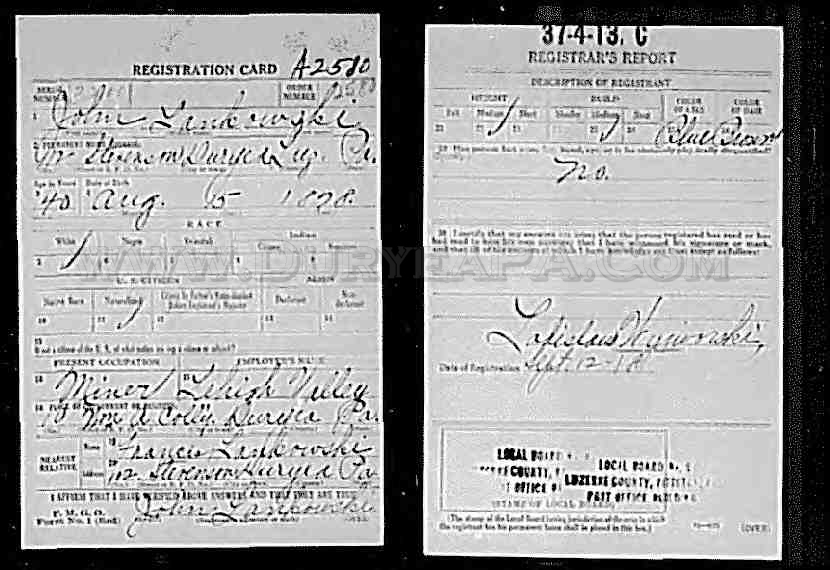 REGISTRATION CARD A2580
SERIAL NUMBER
ORDER NUMBER A2580
1 John Lankowski
2 PERMANENT HOME ADDRESS:
102 Stevenson Duryea Luz. Pa.
Age in Years
Date of Birth
3 40
4 Aug. 5 1878
RACE
White
Negro
Oriental
Indian
Citizen
5 / 6 7 8 9
U. S. CITIZEN
ALIEN
Native Born
Naturalized
Citizen by Father's Naturalization Before Registrant's Majority
Declarant
Non-declarant
10 11 / 12 13 14
15
If not a citizen of the U. S., of what nation are you a citizen or subject?
PRESENT OCCUPATION
EMPLOYER'S NAME
16 Miner
17 Lehigh Valley
18 PLACE OF EMPLOYMENT OR BUSINESS:
Wm A Colly. Duryea Pa
NEAREST RELATIVE
Name 19 Francis Lankowski
Address 20 102 Stevenson Duryea Pa
I AFFIRM THAT I HAVE VERIFIED ABOVE ANSWERS AND THAT THEY ARE TRUE
P. M. G. O.
Form No. 1 (Red)
John Lankowski
37-4-13. C
REGISTRAR'S REPORT
DESCRIPTION OF REGISTRANT
HEIGHT
BUILD
COLOR OF EYES
COLOR OF HAIR
Tall
Medium
Short
Slender
Medium
Stout
21 22 / 23 24 25 / 26
Blue Brown
29 Has person lost arm, leg, hand, eye, or is he obviously physically disqualified?
No.
30 I certify that my answers are true; that the person registered has read or has had read to him his own answers; that I have witnessed his signature or mark, and that all of his answers of which I have knowledge are true, except as follows:
WWW.DURYEAPA.COM
Ladislaus Wisniowski
Date of Registration Sept. 12-18
LOCAL BOARD
LOCAL BOARD No.
LUZERNE COUNTY,
POST OFFICE
(STAMP OF LOCAL BOARD)
(The stamp of the Local Board having jurisdiction of the area in which the registrant has his permanent home shall be placed in this box.)
(OVER)